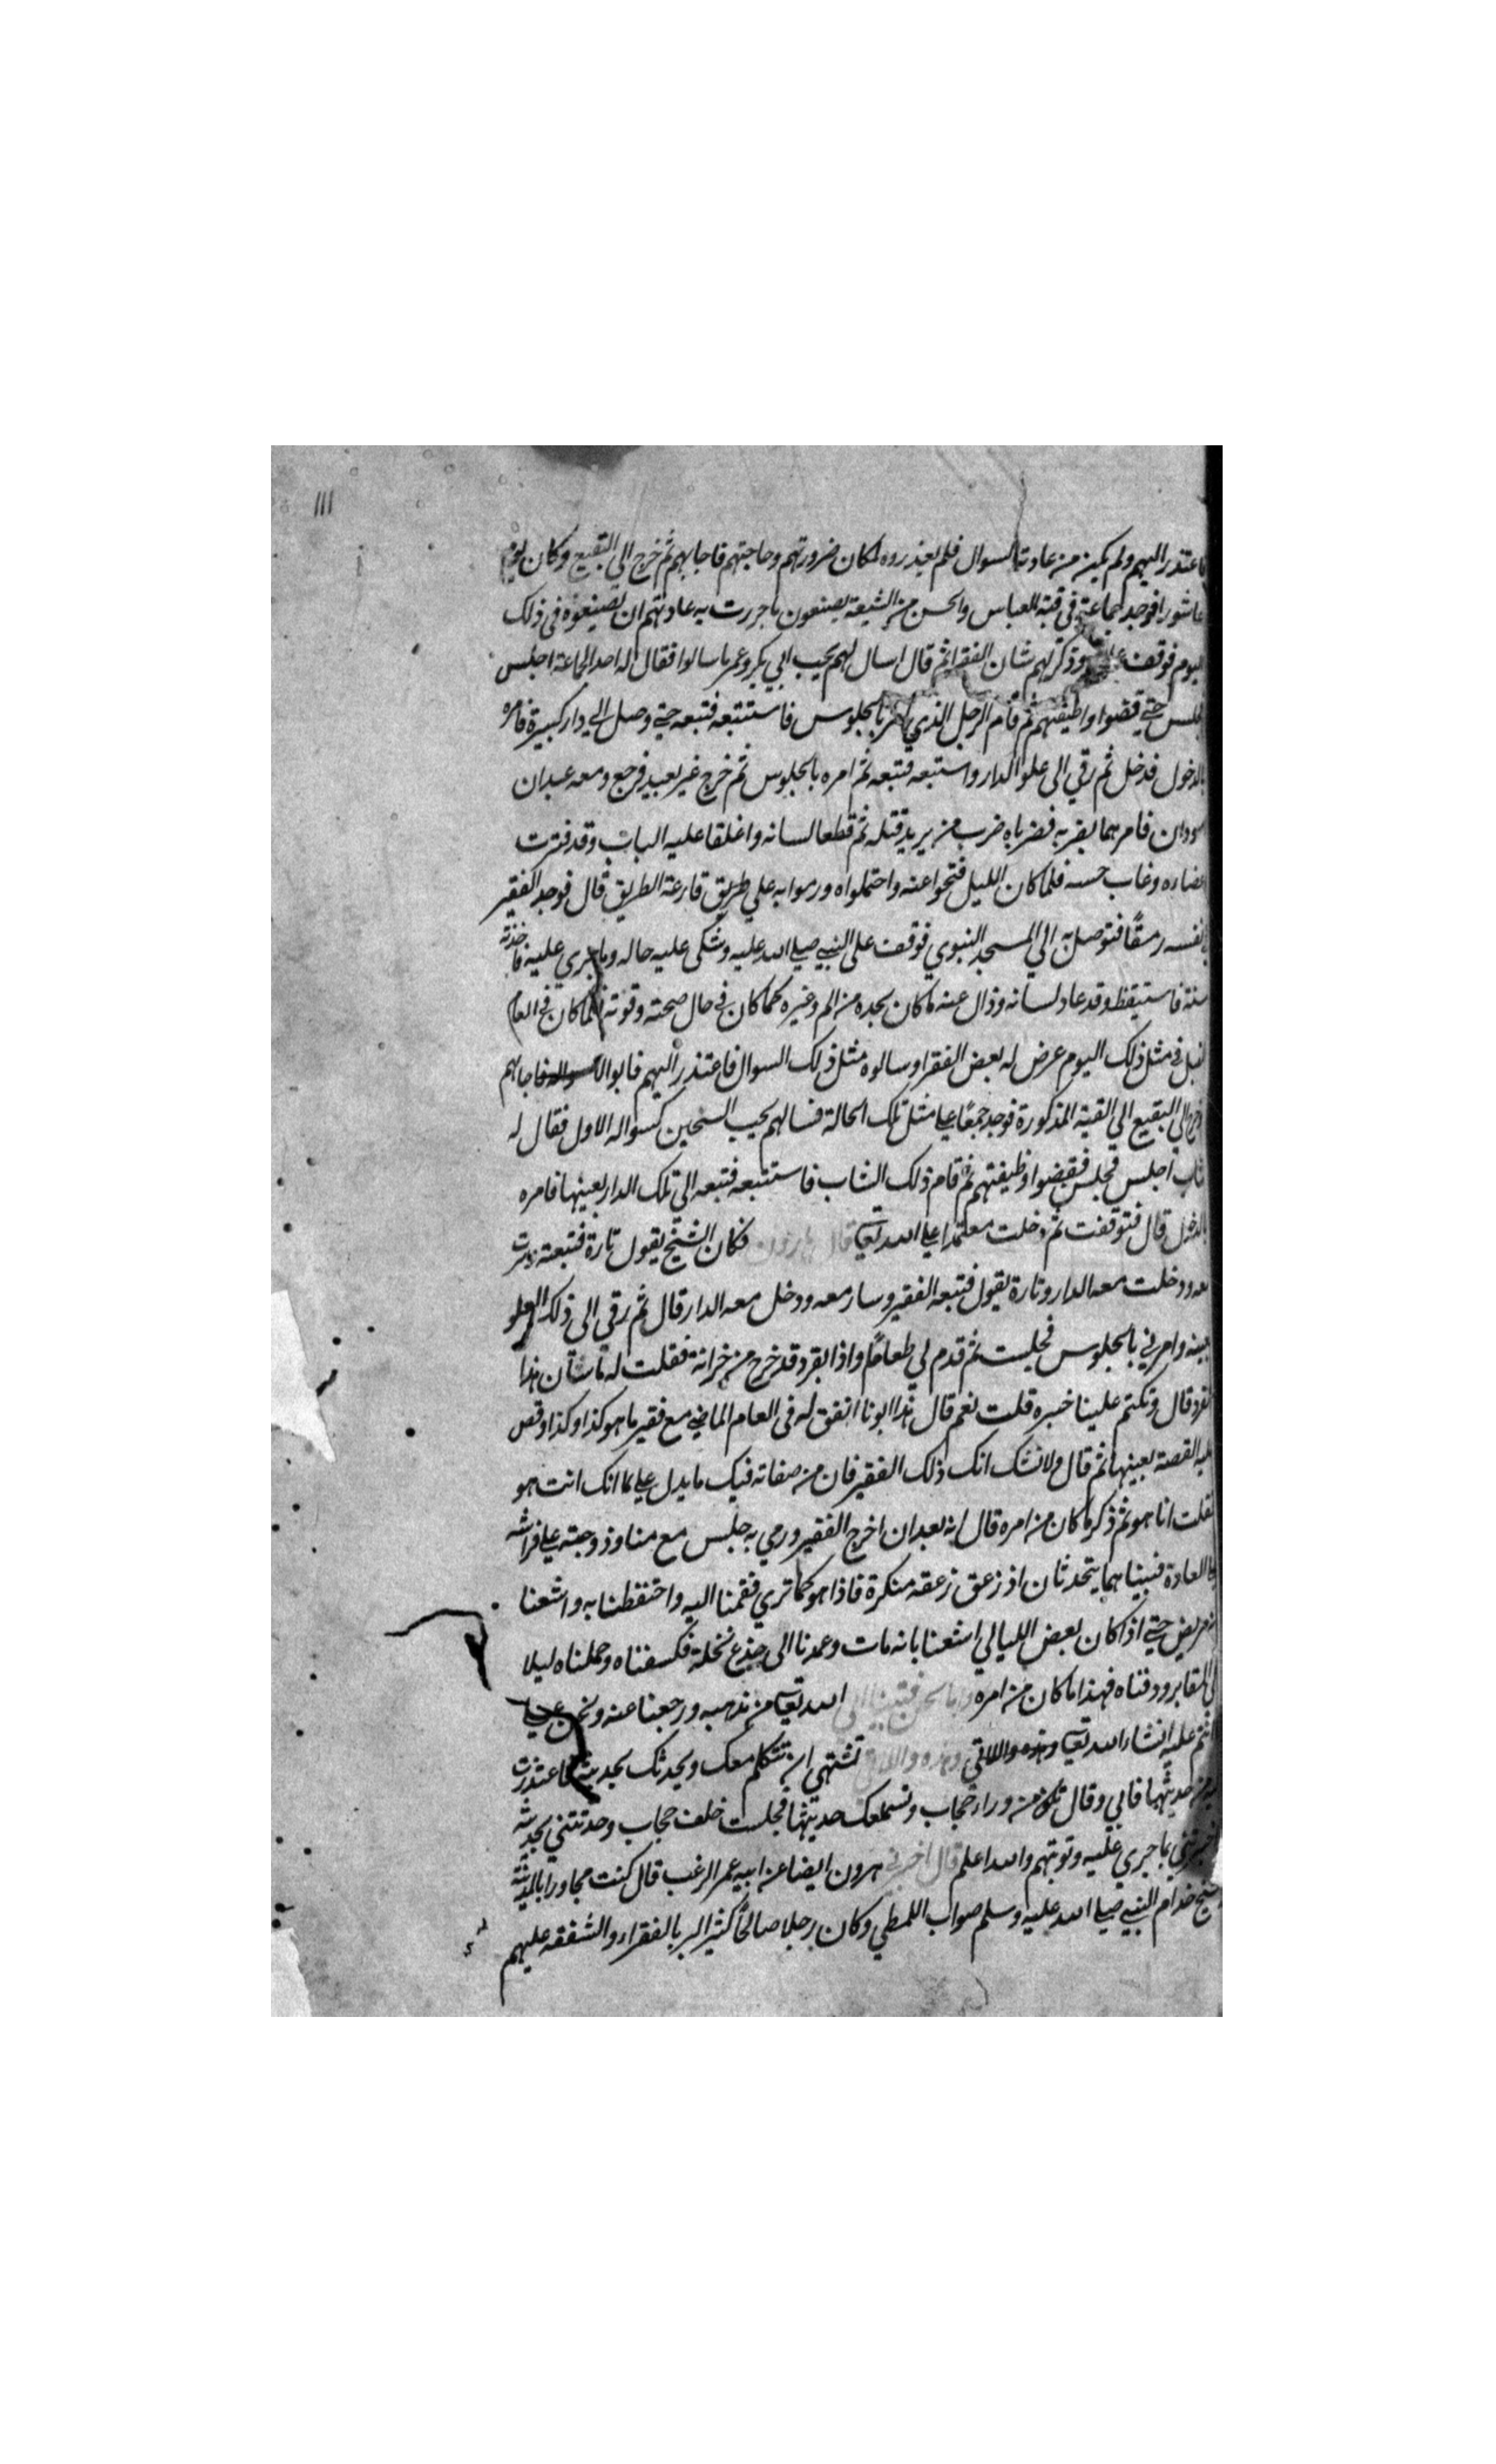 ١١١
فاعتذر اليهم ولم يكن من عادته السوال فلم يعذروه لمكان ضرورتهم وحاجتهم فاجابهم ثم خرج الي البقيع وكان يوم
عاشورا فوجد جماعة في قبة العباس والحسن من الشيعة يصنعون ما جرت به عادتهم ان يصنعوه في ذلك
اليوم فوقف وذكر لهم شان الفقرا ثم قال اسال لهم بحب ابي بكر وعمر ما سالوا فقال له احد الجماعة اجلس
فجلس حتي قضوا وظيفتهم ثم قام الرجل الذي امر بالجلوس فاستتبعه فتبعه حتي وصل الي دار كبيرة فامره
بالدخول فدخل ثم رقي الى علو الدار واستتبعه فتبعه ثم امره بالجلوس ثم خرج غير بعيد فرجع ومعه عبدان
اسودان فامرهما بضربه فضرباه ضرب من يريد قتله ثم قطعا لسانه واغلقا عليه الباب وقد فترت
اعضاوه وغاب حسه فلما كان الليل فتحوا عنه واحتملواه ورموا به علي طريق قارعة الطريق قال فوجد الفقير
في نفسه رمقًا فتوصل به الي المسجد النبوي فوقف على النبي صلي الله عليه وشكى عليه حاله وما جرى عليه فاخذته
سنة فاستيقظ وقد عاد لسانه وزال عنه ما كان يجده من الم وغيره كما كان في حال صحته وقوته فلما كان في العام
المقبل في مثل ذلك اليوم عرض له بعض الفقرا وسالوه مثل ذلك السوال فاعتذر اليهم فابوا الا فاجابهم
فخرج الي البقيع الي القبة المذكورة فوجد جمعًا علي مثل تلك الحالة فسالهم بحب الشيخين كسواله الاول فقال له
شاب اجلس فجلس فقضوا وظيفتهم ثم قام ذلك الشاب فاستتبعه فتبعه الى تلك الدار بعينها فامره
بالدخول قال فتوقفت ثم دخلت معتمدا علي الله تعالى قال هارون فكان الشيخ يقول تارة فتبعته وسرت
معه ودخلت معه الدار وتارة يقول فتبعه الفقير وسار معه ودخل معه الدار قال ثم رقي الى ذلك العلو
بعينه وامرني بالجلوس فجلست ثم قدم لي طعامًا واذا بقرد قد خرج من خزانة فقلت له ما شان هذا
القرد قال وتكتم علينا خبره قلت نعم قال هذا ابونا اتفق له في العام الماضي مع فقير ما هو كذا وكذا وقص
عليه القصة بعينها ثم قال ولا نشك انك ذلك الفقير فان من صفاته فيك ما يدل علي انك انت هو
فقلت انا هو ثم ذكر ما كان من امره قال انه بعد ان اخرج الفقير ورمي به جلس مع منا وزوجته علي فراشه
علي العادة فبينا هما يتحدثان اذ زعق زعقه منكرة فاذا هو كما تري فقمنا اليه واحتفظنا به واشعنا
انه مريض حتي اذا كان بعض الليالي اشعنا بانه مات وعمدنا الى جذع نخلة فكسفناه وحملناه ليلا
الى المقابر ودفناه فهذا ما كان من امره واما نحن فتبنا الى الله تعالى من مذهبه ورجعنا عنه ونحن علي
انتم عليه انشا الله تعالى وهذه والدتي تشتهي ان تتكلم معك ويحدثك بحديثه فاعتذرت
من حديثها فابي وقال تكن من وراء حجاب وتسمعك حديثها فجلست خلف حجاب وحدثتني بحديثه
فاخبرتني بما جري عليه وتوبتهم والله اعلم قال اخبرني هرون ايضا عن ابيه عمر الرغب قال كنت مجاورا بالمدينة
وشيخ خدام النبي صلي الله عليه وسلم صواب اللمطي وكان رجلا صالحًا كثير البر بالفقراء والشفقه عليهم